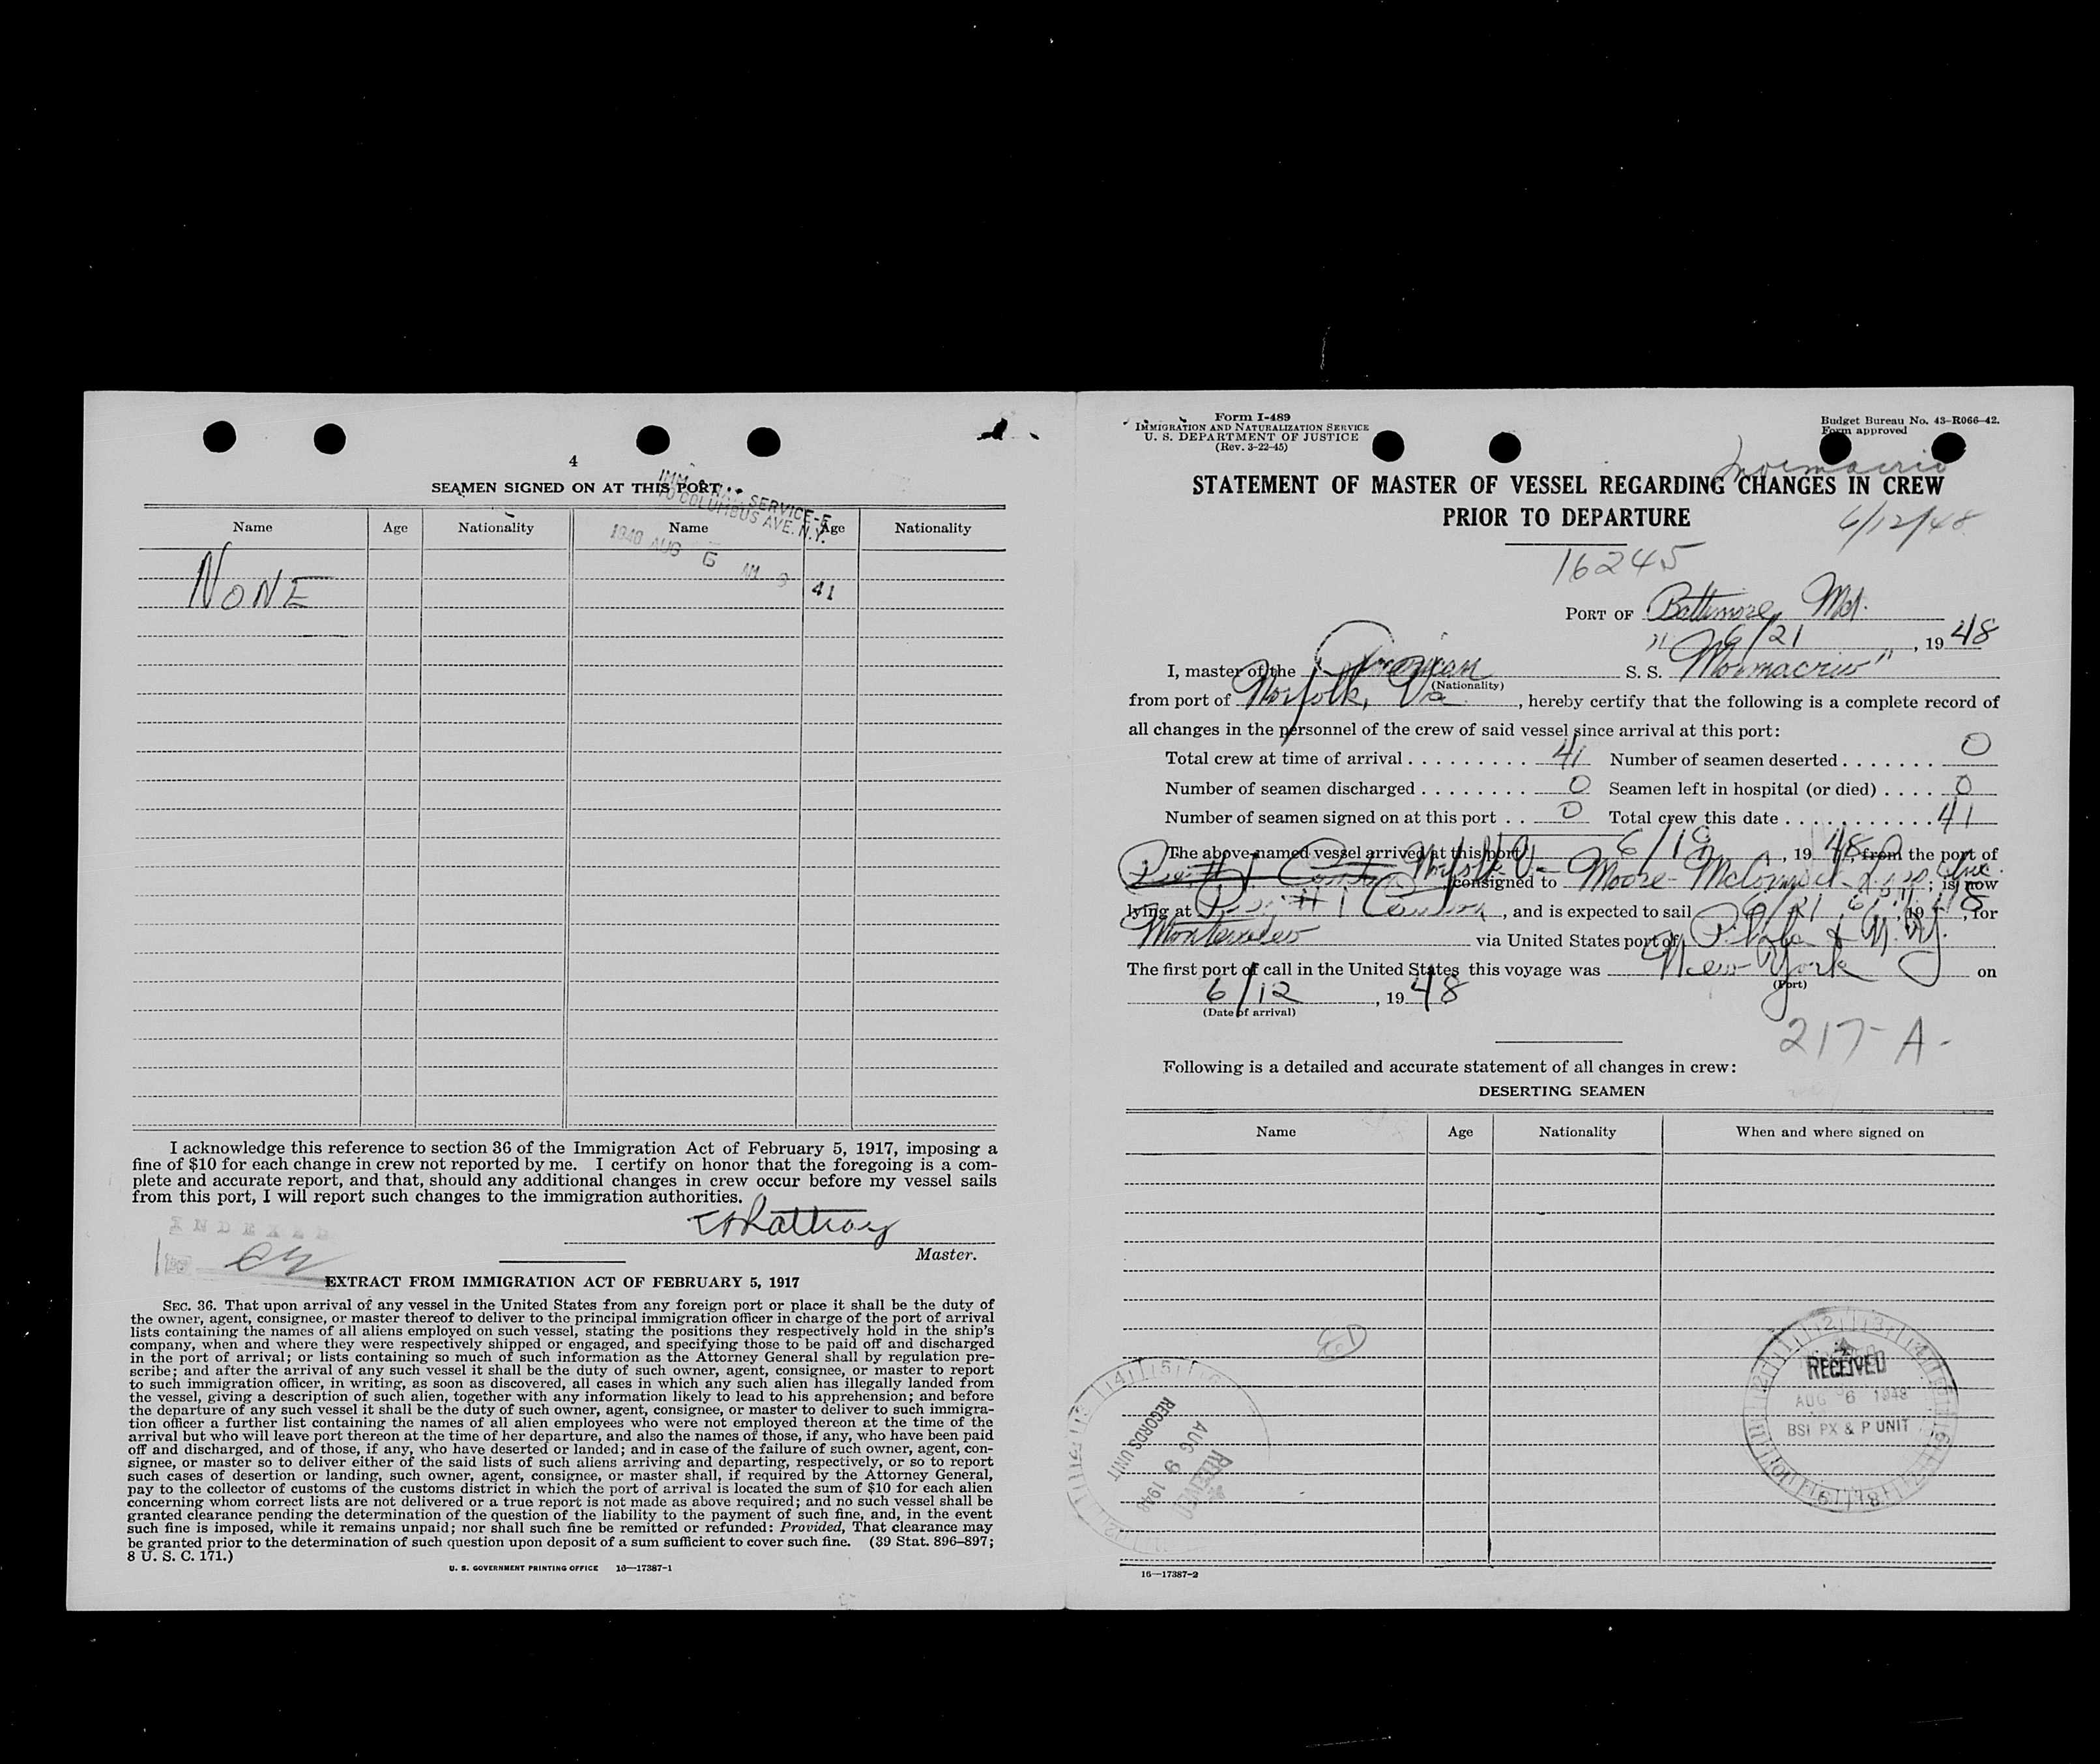 4
SEAMEN SIGNED ON AT THIS PORT
IMM. & NAT. SERVICE-E
70 COLUMBUS AVE. N.Y.
1948 AUG 6 AM 9 41
Name Age Nationality Name Age Nationality
NONE
I acknowledge this reference to section 36 of the Immigration Act of February 5, 1917, imposing a
fine of $10 for each change in crew not reported by me. I certify on honor that the foregoing is a com-
plete and accurate report, and that, should any additional changes in crew occur before my vessel sails
from this port, I will report such changes to the immigration authorities.
Rattray
Master.
EXTRACT FROM IMMIGRATION ACT OF FEBRUARY 5, 1917
SEC. 36. That upon arrival of any vessel in the United States from any foreign port or place it shall be the duty of
the owner, agent, consignee, or master thereof to deliver to the principal immigration officer in charge of the port of arrival
lists containing the names of all aliens employed on such vessel, stating the positions they respectively hold in the ship's
company, when and where they were respectively shipped or engaged, and specifying those to be paid off and discharged
in the port of arrival; or lists containing so much of such information as the Attorney General shall by regulation pre-
scribe; and after the arrival of any such vessel it shall be the duty of such owner, agent, consignee, or master to report
to such immigration officer, in writing, as soon as discovered, all cases in which any such alien has illegally landed from
the vessel, giving a description of such alien, together with any information likely to lead to his apprehension; and before
the departure of any such vessel it shall be the duty of such owner, agent, consignee, or master to deliver to such immigra-
tion officer a further list containing the names of all alien employees who were not employed thereon at the time of the
arrival but who will leave port thereon at the time of her departure, and also the names of those, if any, who have been paid
off and discharged, and of those, if any, who have deserted or landed; and in case of the failure of such owner, agent, con-
signee, or master so to deliver either of the said lists of such aliens arriving and departing, respectively, or so to report
such cases of desertion or landing, such owner, agent, consignee, or master shall, if required by the Attorney General,
pay to the collector of customs of the customs district in which the port of arrival is located the sum of $10 for each alien
concerning whom correct lists are not delivered or a true report is not made as above required; and no such vessel shall be
granted clearance pending the determination of the question of the liability to the payment of such fine, and, in the event
such fine is imposed, while it remains unpaid; nor shall such fine be remitted or refunded: Provided, That clearance may
be granted prior to the determination of such question upon deposit of a sum sufficient to cover such fine. (39 Stat. 896-897;
8 U. S. C. 171.)
U. S. GOVERNMENT PRINTING OFFICE 16—17387-1
Form I-489
IMMIGRATION AND NATURALIZATION SERVICE
U. S. DEPARTMENT OF JUSTICE
(Rev. 3-22-45)
Budget Bureau No. 43-R066-42.
Form approved
Mormacrio
STATEMENT OF MASTER OF VESSEL REGARDING CHANGES IN CREW
PRIOR TO DEPARTURE
6/12/48
16245
PORT OF Baltimore, Md.
6/21, 1948
I, master of the American S. S. "Mormacrio"
(Nationality)
from port of Norfolk, Va., hereby certify that the following is a complete record of
all changes in the personnel of the crew of said vessel since arrival at this port:
Total crew at time of arrival 41 Number of seamen deserted 0
Number of seamen discharged 0 Seamen left in hospital (or died) 0
Number of seamen signed on at this port 0 Total crew this date 41
The above-named vessel arrived at this port 6/19, 1948, from the port of
Norfolk Va, consigned to Moore-McCormack; is now
lying at Pier #1 Canton, and is expected to sail 6/21, 19, for
Montevideo via United States port of Phila & N.Y.
The first port of call in the United States this voyage was New York on
(Port)
6/12, 1948
(Date of arrival)
217-A-
Following is a detailed and accurate statement of all changes in crew:
DESERTING SEAMEN
Name Age Nationality When and where signed on
RECEIVED
AUG 6 1948
BSI PX & P UNIT
RECEIVED
AUG 9 1948
RECORDS UNIT
16—17387-2